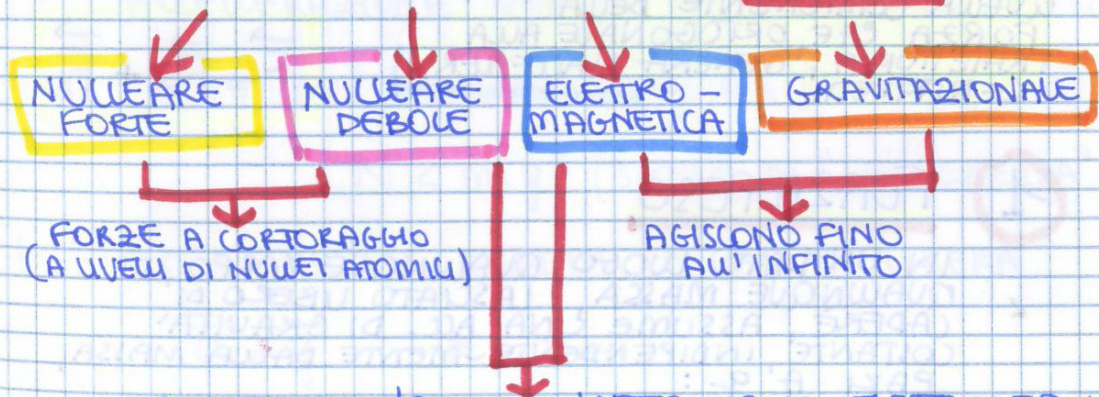 NUCLEARE
FORTE
NUCLEARE
DEBOLE
ELETTRO-
MAGNETICA
GRAVITAZIONALE
FORZE A CORTORAGGIO
(A LIVELLI DI NUCLEI ATOMICI)
AGISCONO FINO
ALL'INFINITO